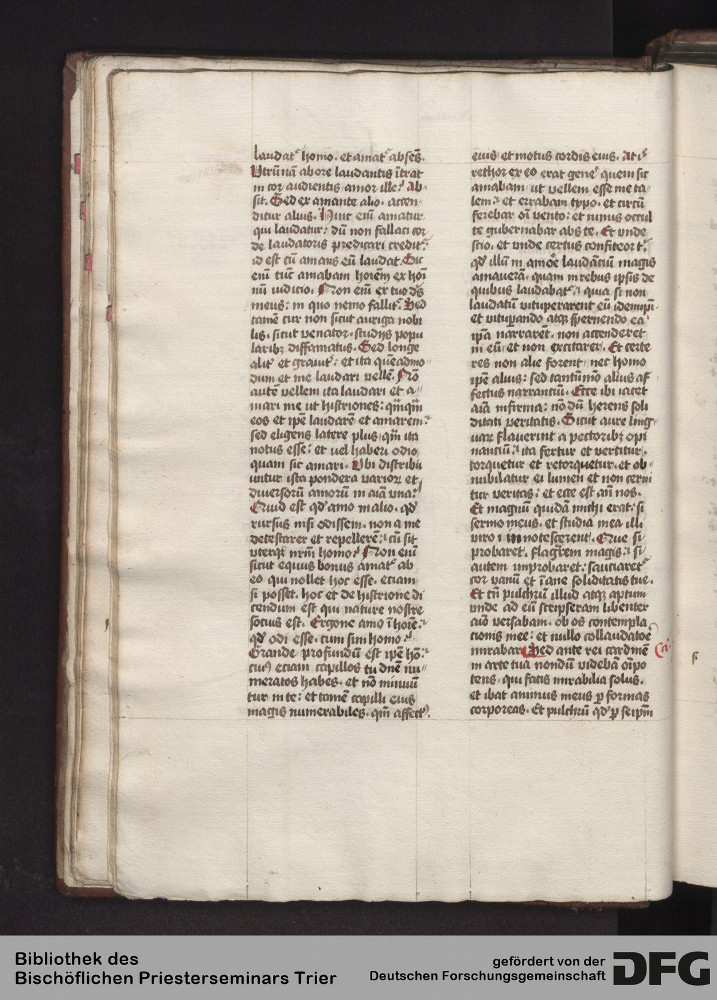 laudat᷑ homo · et amat᷑ absēs̄ ·
Vtrū nā ab ore laudantis ītrat
in cor audientis amor ille · Ab
sit · Sed ex amante alio · accen
ditur alius · Hinc eni᷒ amatur
qui laudatur : dū non fallaci cor
de laudatoris predicari credit᷑ :
id est cū amans eū laudat · Sic
eni᷒ tūc amabam hoīem ex hoī
nū iudicio · Non eni᷒ ex tuo dꝰs
meus : in quo nemo fallit᷑ · Sed
tamē cur non sicut auriga nobi
lis · sicut venator · studijs popu
laribꝫ diffamatus · Sed longe
alit᷑ et grauit᷑ : et ita queadmo
dum et me laudari vellē · Nō
autē vellem ita laudari et a
mari me ut histriones : qm̄qm̄
eos et ip̄e laudarē et amarem :
sed eligens latere plus · qm̄ ita
notus esse : et uel haberi odio
quam sic amari · Vbi distribu
untur ista pondera varioꝝ et
diuersorū amorū in aīa vna ?
Quid est qd̕ amo in alio · qd̕
rursus nisi odissem · non a me
detestarer et repellerē : cū sit
uterqꝫ nr̄m homo ? Non eni᷒
sicut equus bonus amat᷑ ab
eo qui nollet hoc esse · eciam
si posset · hoc et de histrione di
cendum est qui nature nostre
socius est · Ergone amo ī hoīe :
qd̕ odi esse · cum sim homo ?
Grande profundū est ip̄e hō :
cuiꝰ eciam capillos tu dn̄e nu
meratos habes · et nō minuū
tur in te : et tamē capilli eius
magis numerabiles · qm̄ affectꝰ
eius et motus cordis eius · At
rethor ex eo erat gen̄e quem sic
amabam · ut vellem esse me ta
lem : et errabam typo · et circū
ferebar oī vento : et nimis occul
te gubernabar abs te · Et vnde
scio · et vnde certus confiteor t
qd̕ illū in amōe laudāciū magis
amauerā · quam in rebus ipsis de
quibus laudabat᷑ : quia si non
laudatū vituperarent eū idemip̄i
et vitupando atqꝫ spernendo ea
ip̄a narrarent · non accenderer
in eū · et non excitarer · Et certe
res non alie forent · nec homo
ip̄e alius : sed tantūmō alius af
fectus narranciū · Ecce ibi iacet
aīa infirma : nōdū herens soli
ditati veritatis · Sicut aure ling
uaꝝ flauerint a pectoribꝫ opi
nanciū : ita fertur et vertitur ·
torquetur et retorquetur · et ob
nubilatur ei lumen et non cerni
tur veritas : et ecce est an̄ nos ·
Et magnū quidā michi erat : si
sermo meus · et studia mea illi
viro innotescerent · Que si
probaret · flagrem magis : si
autem improbaret : sauciaret᷑
cor vanū et īane soliditatis tue ·
Et tn̄ pulchrū illud atqꝫ aptum
unde ad eū scripseram libenter
aīo versabam · ob os contempla
cionis mee : et nullo collaudatoē
mirabar Sed ante rei cardinē
in arte tua nondū videbā oīpo
tens · qui facis mirabilia solus ·
et ibat animus meus ꝑ formas
corporeas · Et pulchrū qd̕ ꝑ seip̄m
Bibliothek des
Bischöflichen Priesterseminars Trier
gefördert von der
Deutschen Forschungsgemeinschaft
DFG